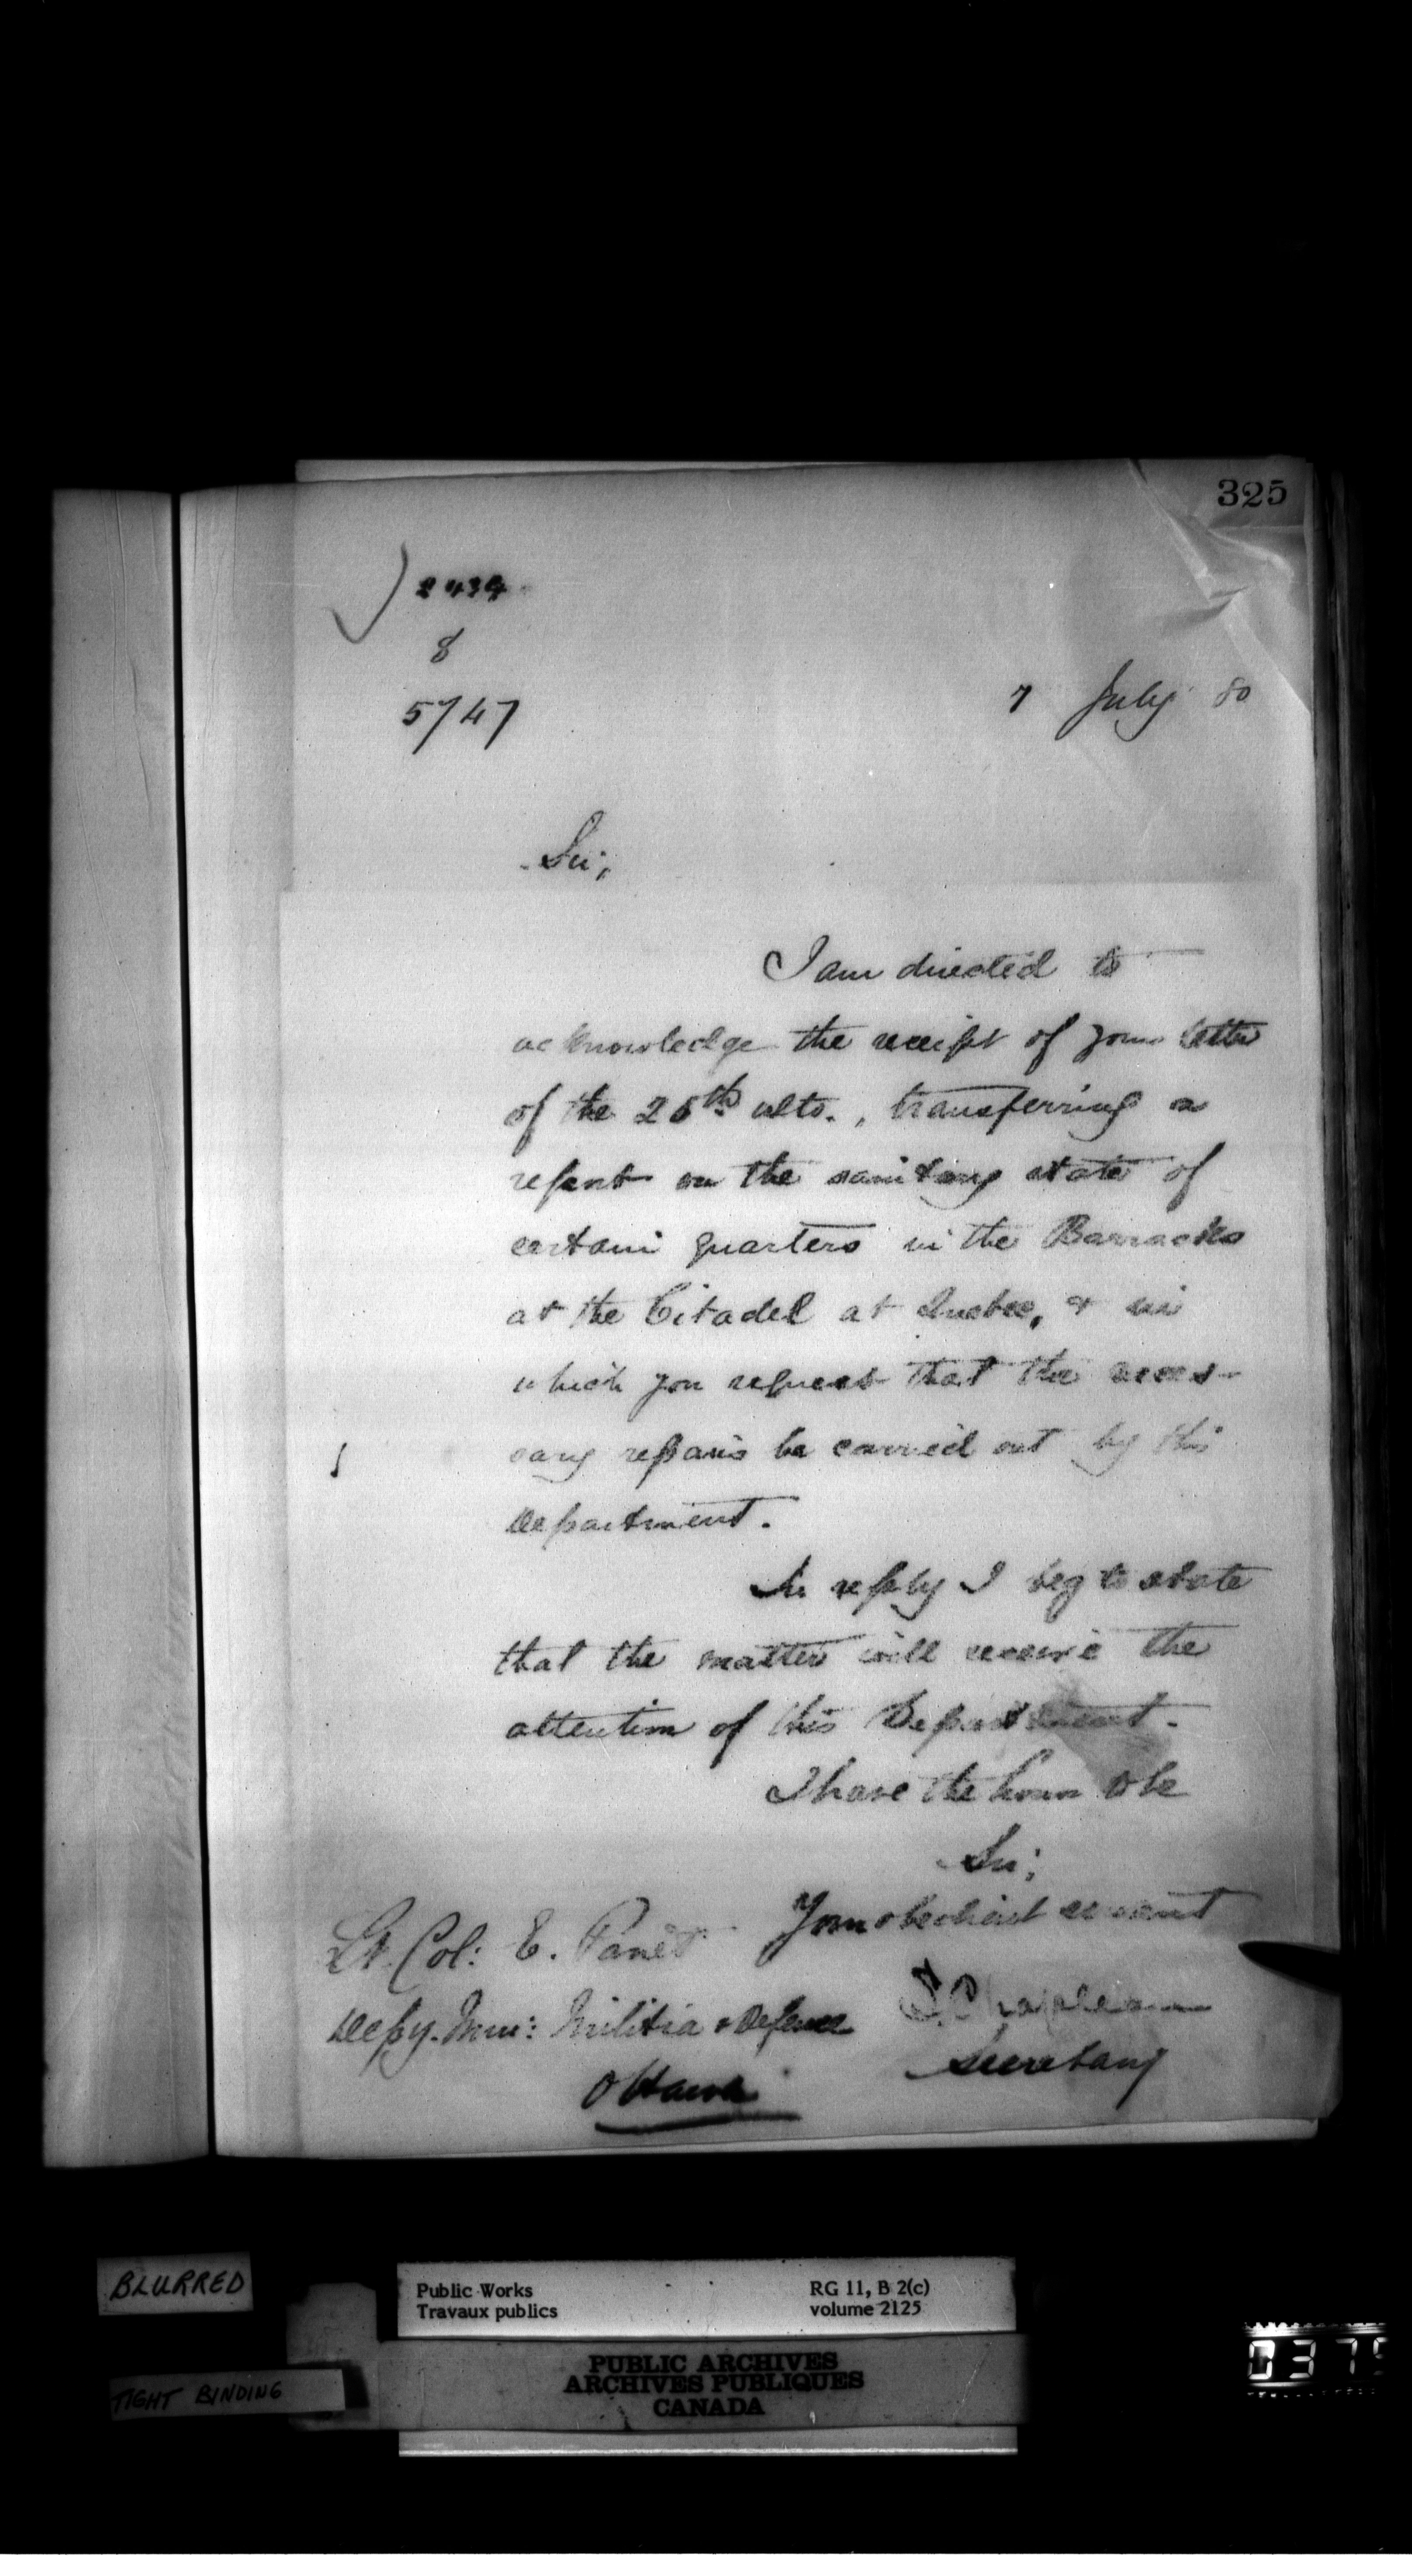 325
2434
8
5747
7 July 80
Sir;
I am directed to
acknowledge the receipt of your letter
of the 26th ulto., transferring a
report on the sanitary state of
certain quarters in the Barracks
at the Citadel at Quebec, & in
which you request that the neces-
sary repairs be carried out by this
Department.
In reply I beg to state
that the matter will receive the
attention of this Department.
I have the honor to be
Sir;
Your obedient servant
S. Chapleau
Secretary
Lt. Col: E. Panet
Depy. Min: Militia & Defence
Ottawa
BLURRED
TIGHT BINDING
Public Works
Travaux publics
RG 11, B 2(c)
volume 2125
PUBLIC ARCHIVES
ARCHIVES PUBLIQUES
CANADA